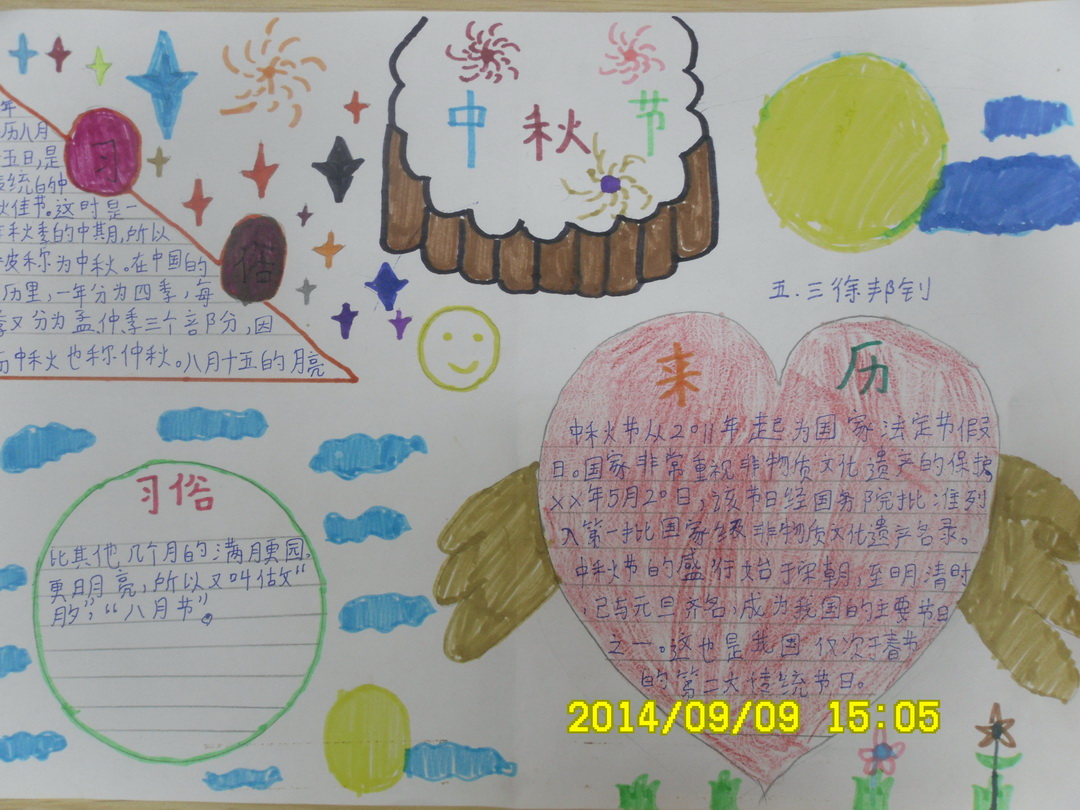 中秋节
习
俗
年
历八月
五日,是
统的中
秋佳节。这时是一
秋季的中期,所以
被称为中秋。在中国的
历里,一年分为四季,每
季又分为孟仲季三个部分,因
而中秋也称仲秋。八月十五的月亮
五.三徐邦钊
来历
中秋节从2011年起为国家法定节假
日。国家非常重视非物质文化遗产的保护
xx年5月20日,该节日经国务院批准列
入第一批国家级非物质文化遗产名录。
中秋节的盛行始于宋朝,至明清时
,已与元旦齐名,成为我国的主要节日
之一。这也是我国仅次于春节
的第二大传统节日。
习俗
比其他几个月的满月更园,
更明亮,所以又叫做"
月夕","八月节"。
2014/09/09 15:05